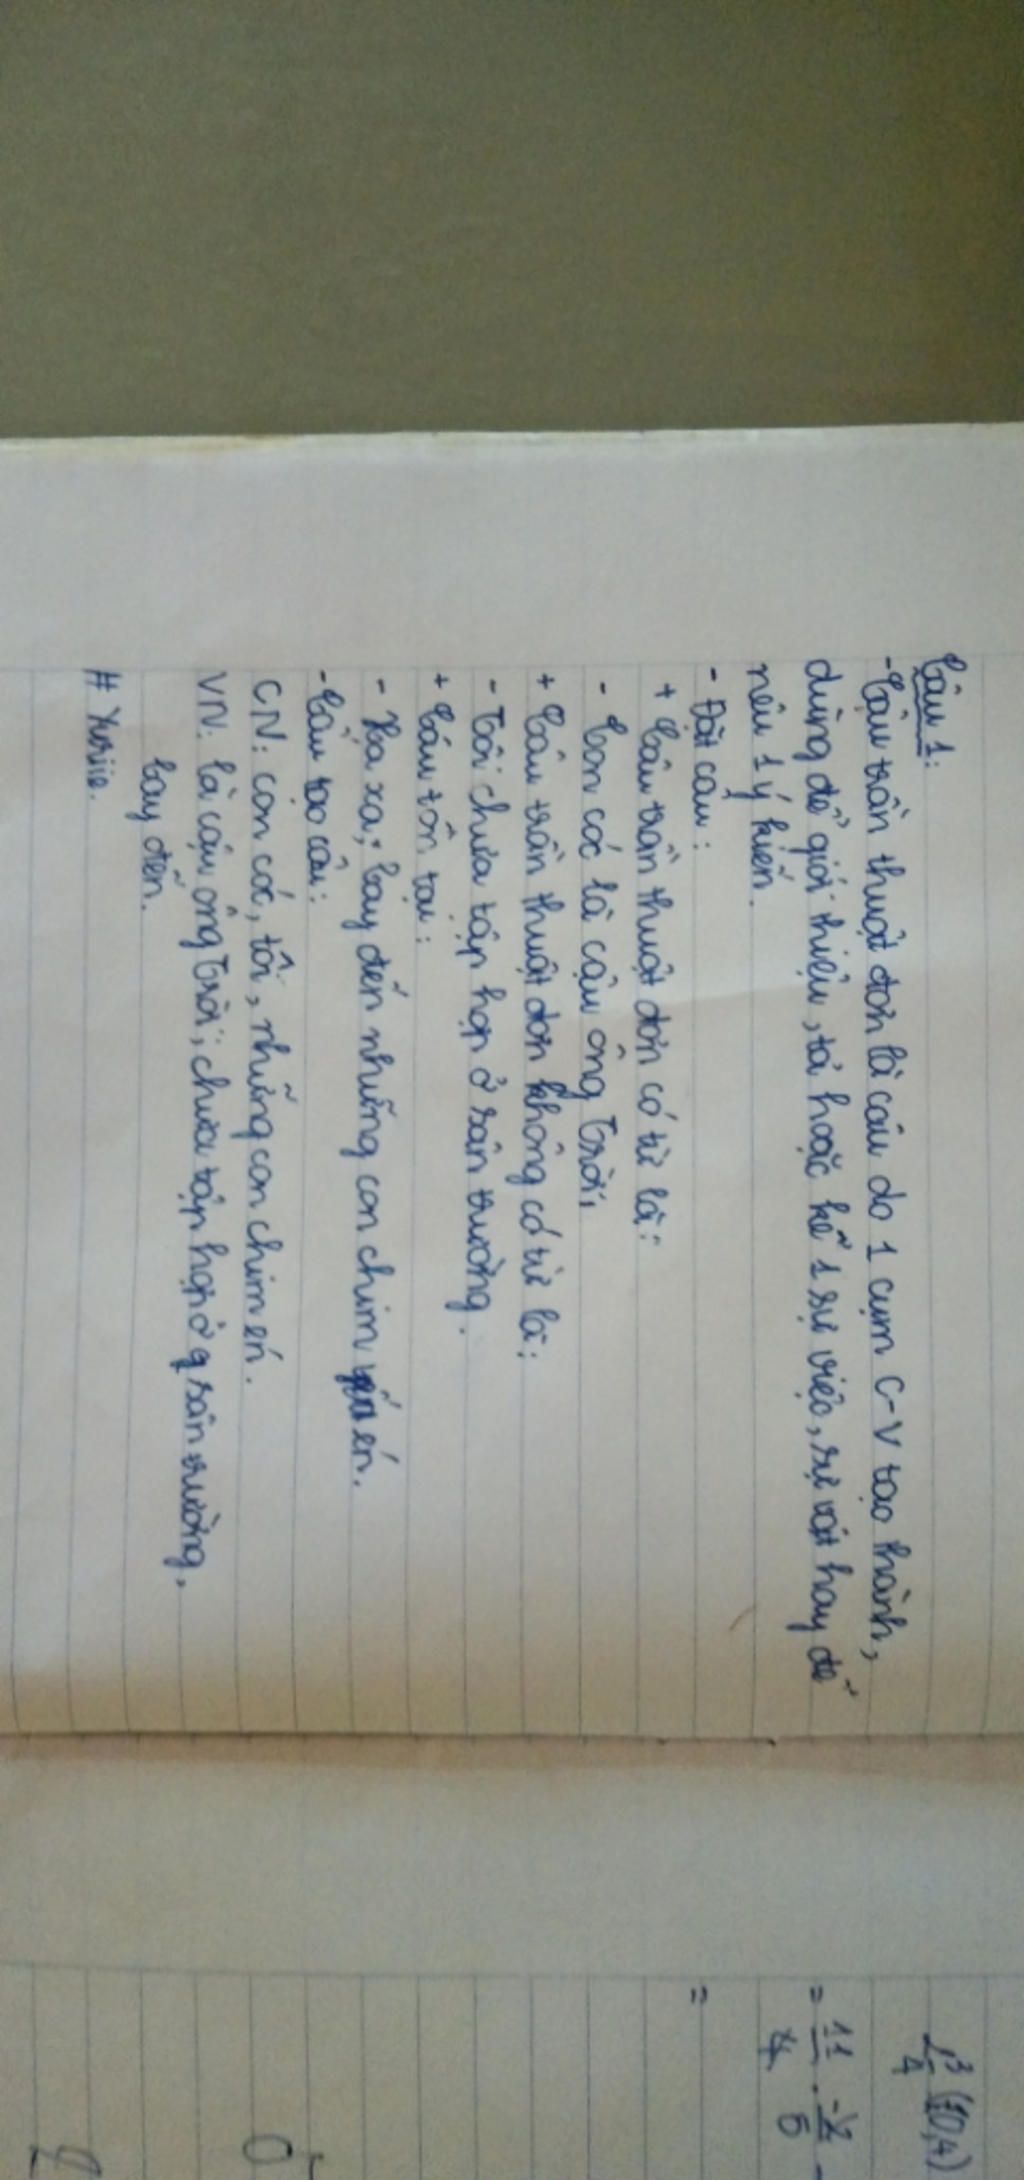 Câu 1:
- Câu trần thuật đơn là câu do 1 cụm C-V tạo thành,
dùng để giới thiệu, tả hoặc kể 1 sự việc, sự vật hay để
nêu 1 ý kiến.
- Đặt câu:
+ Câu trần thuật đơn có từ là:
- Con cóc là cậu ông Trời,
+ Câu trần thuật đơn không có từ là:
- Tôi chưa tập hợp ở sân trường.
+ Câu tồn tại:
- Xa xa, bay đến những con chim én.
- Cấu tạo câu:
CN: con cóc, tôi, những con chim én.
VN: là cậu ông Trời, chưa tập hợp ở sân trường,
bay đến.
# Yusiio.
(10,4)
= 11/4 . -2/5
=